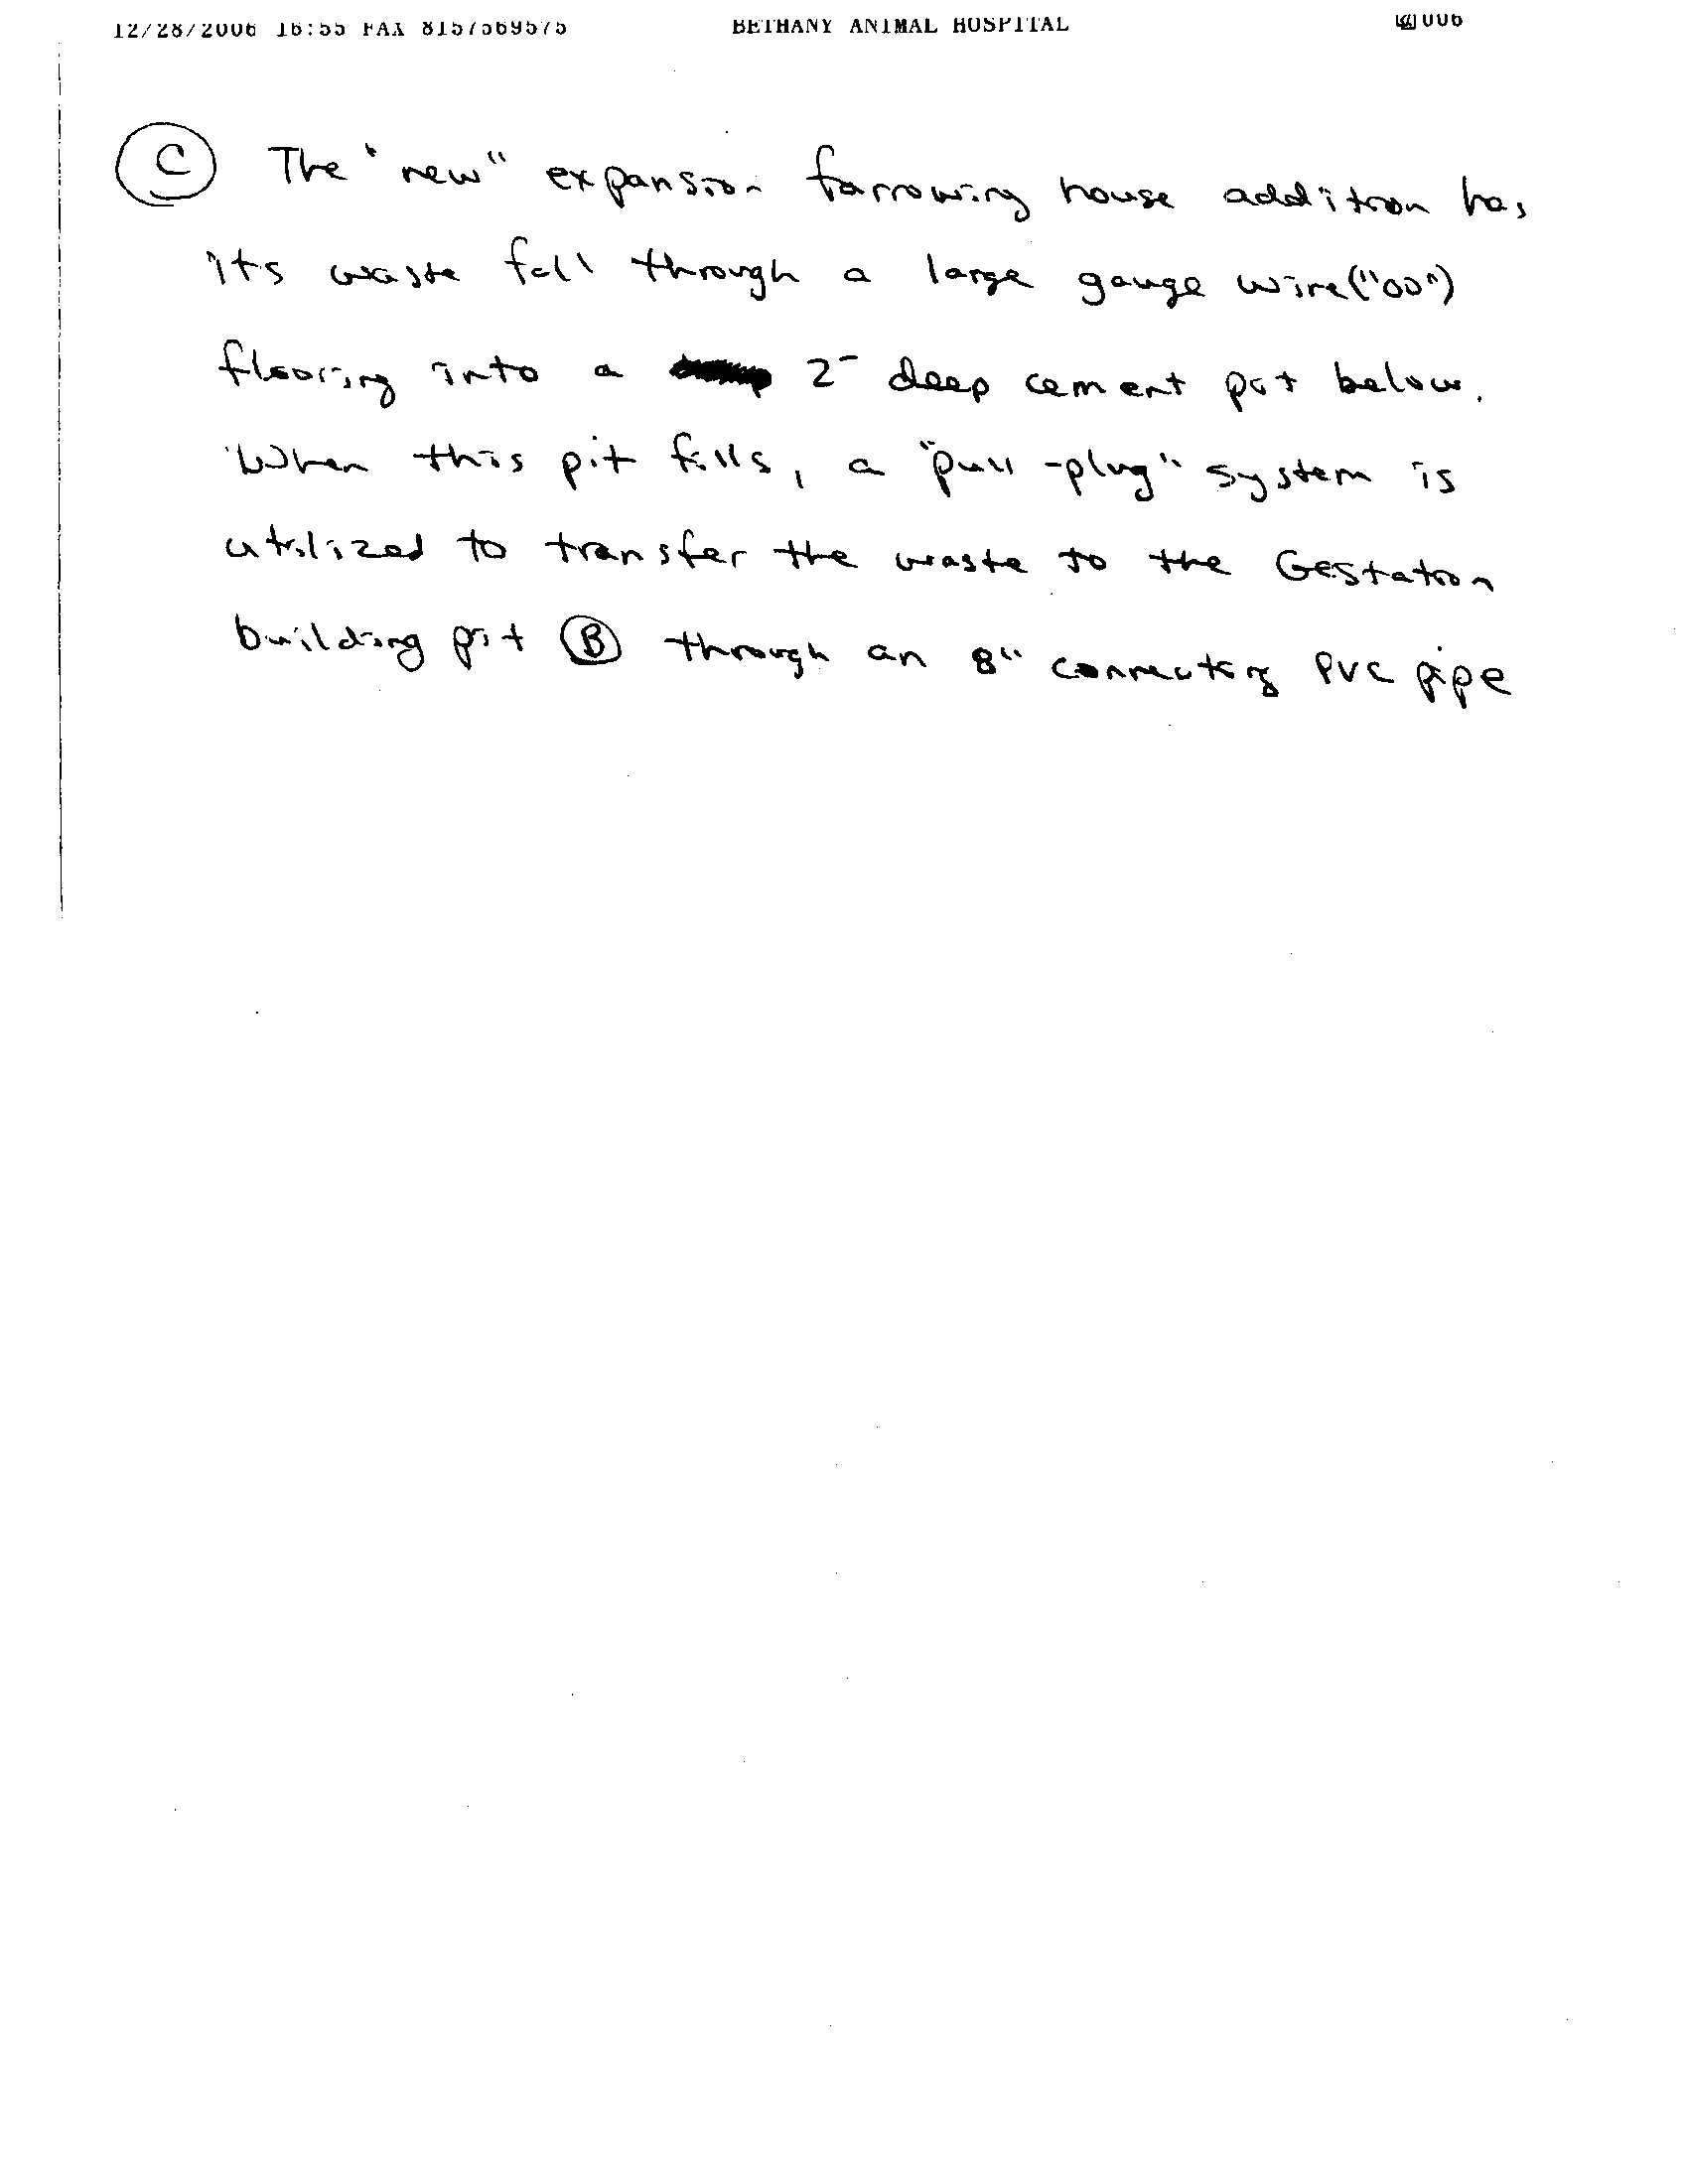 12/28/2006 16:55 FAX 8157569575 BETHANY ANIMAL HOSPITAL 006
C The "new" expansion farrowing house addition has
its waste fall through a large gauge wire("00")
flooring into a 2- deep cement pit below.
When this pit fills, a "pull-plug" system is
utilized to transfer the waste to the Gestation
building pit B through an 8" connecting PVC pipe